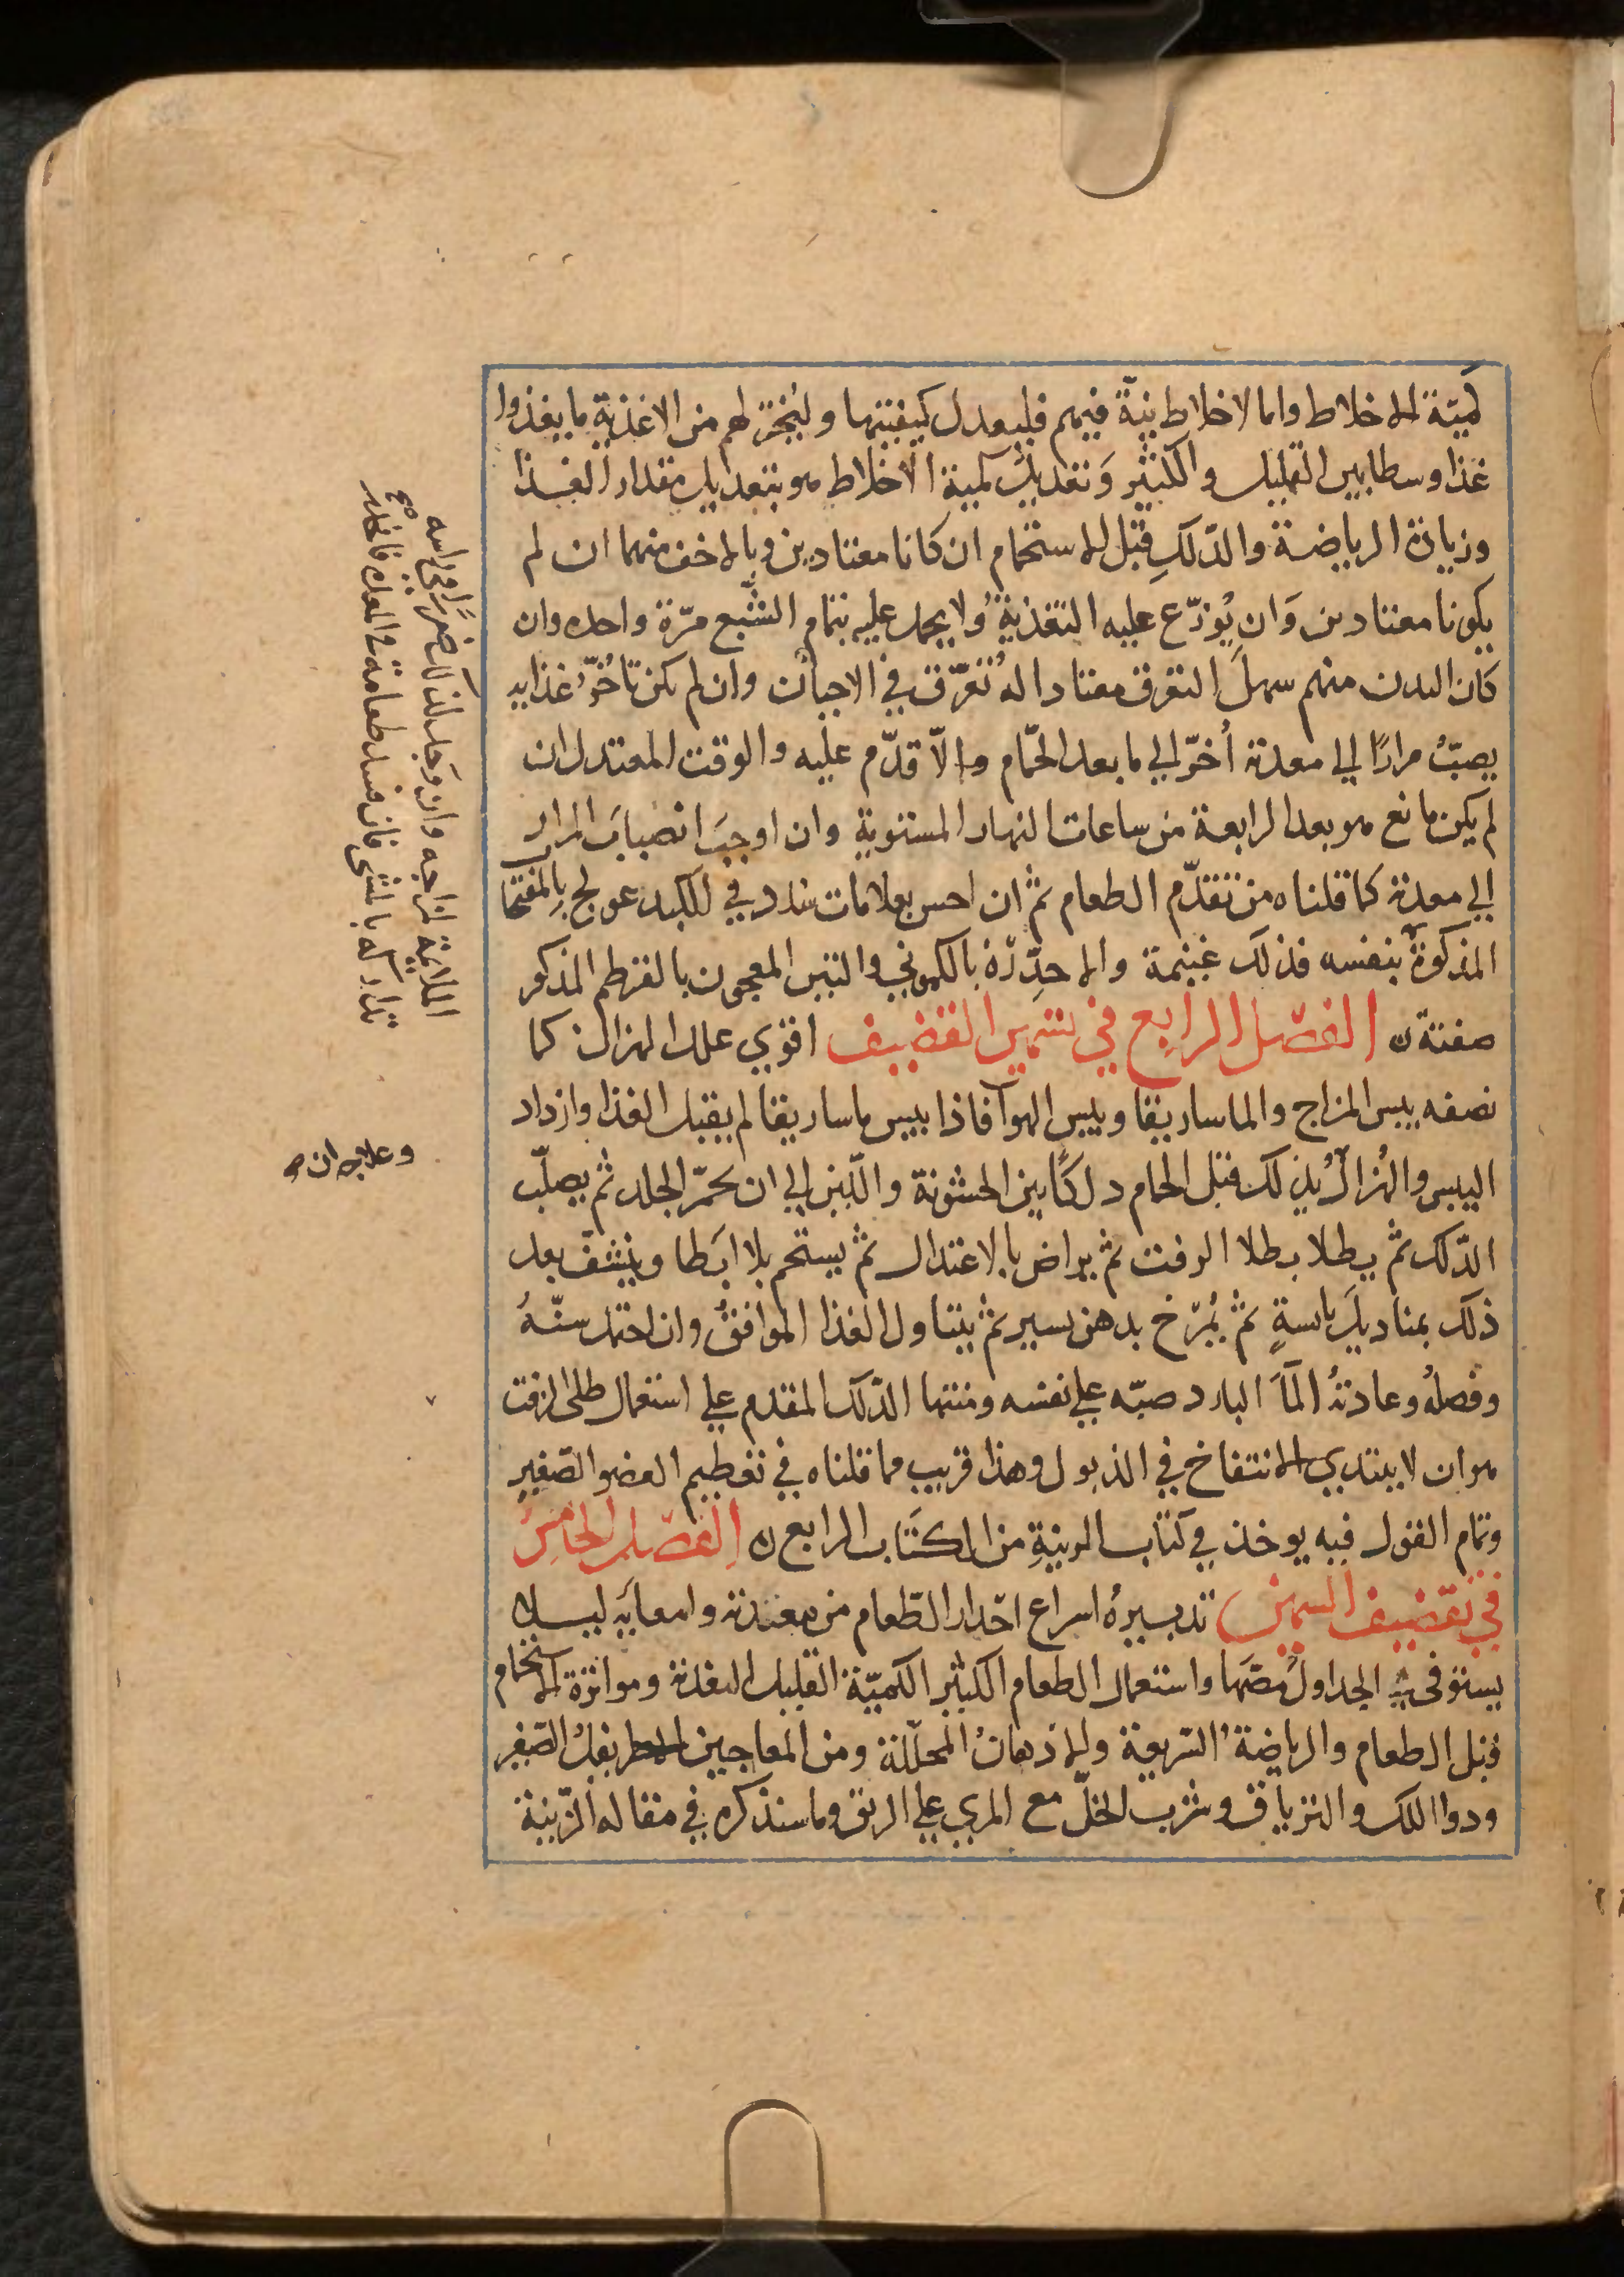 كميّة الاخلاط واما لاخلاط نيّة فيهم فليعدل كيفيتها وليُختر لهم من الاغذية ما يغذوا
غذا وسطا بين القليل والكثير وَتعديل كمية الاخلاط هو بتعديل مقدار الغذا
وزيادة الرياضة والدّلكِ قبل الاستحمام ان كانا معتادين وبالاخف منهما ان لم
يكونا معتادين وَان يُوزّع عليه التغذية ولا يحمل عليه بتمام الشّبع مرّة واحدة وان
كان البدن منهم سهلَ التعرق معتادا له تُعرّق في الاحيان وان لم يكن تأخّر غذايه
يصبّ مرارًا الي معدته أخّر الي ما بعد الحمّام والاّ قدّم عليه والوقت المعتدل ان
لم يكن مانع هو بعد الرابعة من ساعات النهار المستوية وان اوجبَ انصبابَ المرار
الي معدته كما قلناه من تقدّم الطعام ثم ان احس بعلامات سدد في الكبد عولج بالمفتحا
المذكورة بنفسه فذلك غنيمة والا حدّره بالكموني والتين المعجون بالقرطم المذكور
صفته ن الفصّل الرابع في تسمين القضيف اقوي علل الهزال كما
نصفه يبس المزاج والماساريقا ويبس الهوآ فاذا يبس ماساريقا لم يقبل الغذا وازداد
اليبس والهُزال يُدلك قبل الحمام دلكًا بين الخشونة واللّين الي ان يحمّر الجلد ثم يصلّب
الدّلك ثم يطلا بطلا الزفت ثم يراض بالاعتدال ثم يستحم بلا ابطا وينشّف بعد
ذلك بمناديل يابسةٍ ثم يُمرّخ بدهن يسير ثم يتناول الغذا الموافق وان احتمل سنّهُ
وفصلُه وعادتهُ المآ البارد صبّه علي نفسه ومنتها الدّلك المقدم علي استعمال طلي الزفت
هو ان لا يبتدي الانتفاخ في الذبول وهذا قريب مما قلناه في تعظيم العضو الصّغير
وتمام القول فيه يوخذ في كتاب الزينةِ من الكتَاب الرابع ن الفصّل الخامسُ
في تقضيف السمين تدبيرهُ اسراع احدار الطّعام من معدته وامعايه ليلا
يستوفي الجداول مصّها واستعمال الطعام الكثير الكميّة القليل التغذية ومواترة الاستحمام
قبل الطعام والرياضة السّريعة والاذهان المحلّلة ومن المعاجين الاطريفل الصّغير
ودوا اللك والترياق وشرب الخلّ مع المري علي الريق وما سنذكره في مقاله الزّينة
وعلاجه ان